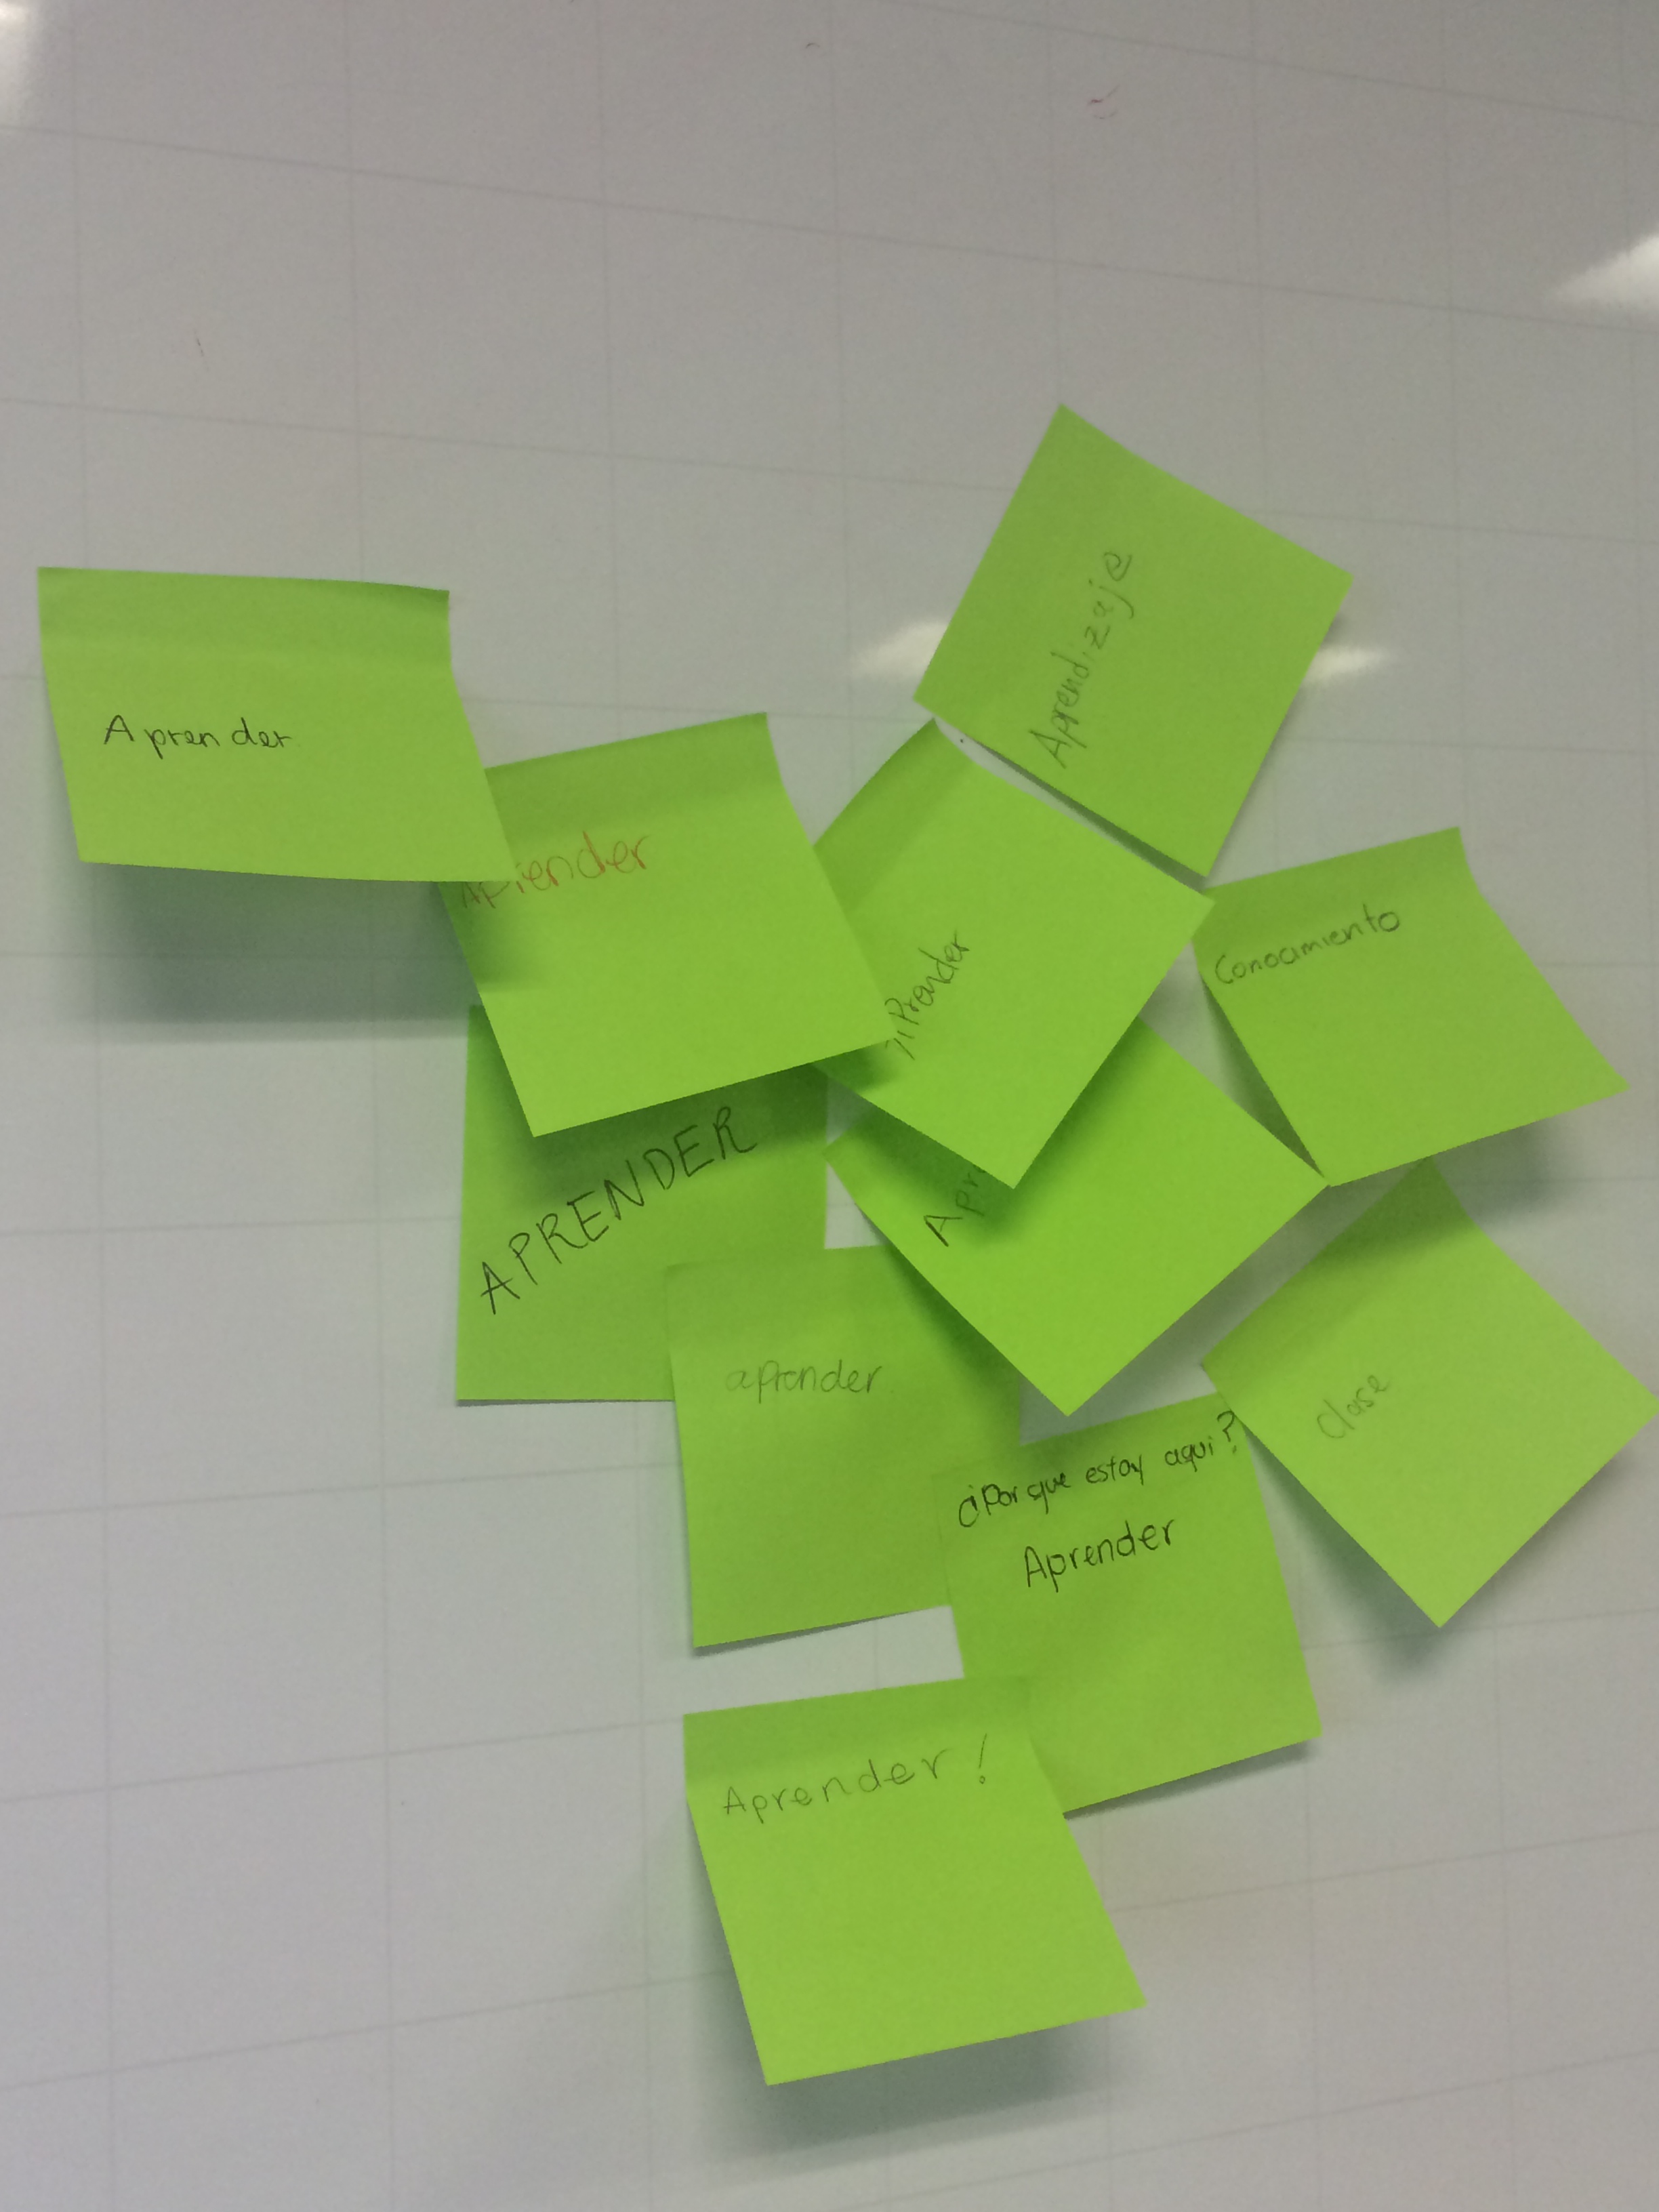 Aprendizaje
Aprender
Aprender
Aprender
Conocimiento
APRENDER
Apr
aprender
Clase
¿Por que estoy aqui?
Aprender
Aprender!